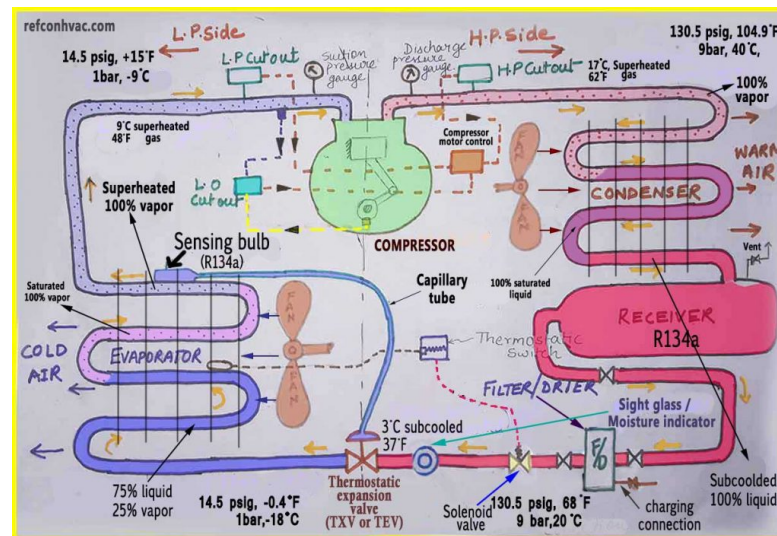 refconhvac.com
L.P.Side
H.P.Side
130.5 psig, 104.9°F
9bar, 40°C,
14.5 psig, +15°F
1bar, -9°C
L.P Cutout
Suction
pressure
gauge
Discharge
pressure
gauge
H.P Cutout
17°C, Superheated
62°F gas
100%
vapor
9°C superheated
48°F gas
Compressor
motor control
FAN
FAN
WARM
AIR
CONDENSER
L.O
Cutout
Superheated
100% vapor
COMPRESSOR
Sensing bulb
(R134a)
100% saturated
liquid
Vent
Capillary
tube
Saturated
100% vapor
FAN
FAN
RECEIVER
R134a
Thermostatic
Switch
COLD
AIR
EVAPORATOR
FILTER/DRIER
Sight glass /
Moisture indicator
3°C subcooled
37°F
F/D
75% liquid
25% vapor
14.5 psig, -0.4°F
1bar,-18°C
Thermostatic
expansion
valve
(TXV or TEV)
Solenoid
valve
130.5 psig, 68°F
9 bar,20°C
charging
connection
Subcoolded
100% liquid